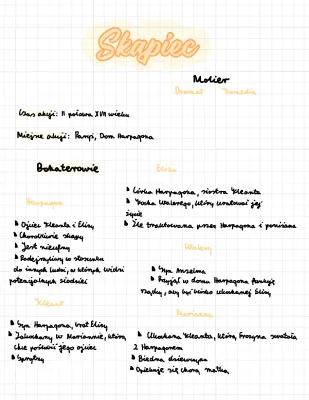 Skąpiec
Molier
Dramat Komedia
Czas akcji: II połowa XVII wieku
Miejsce akcji: Paryż, Dom Harpagona
Bohaterowie
Harpagon
Ojciec Kleanta i Elizy
Chorobliwie skąpy
Jest nieufny
Podejrzliwy w stosunku
do innych ludzi, w których widzi
potencjalnych złodziei
Kleant
Syn Harpagona, brat Elizy
Zakochany w Mariannie, którą
chce poślubić jego ojciec
Sprytny
Eliza
Córka Harpagona, siostra Kleanta
Kocha Walerego, który uratował jej
życie
Źle traktowana przez Harpagona i poniżana
Walery
Syn Anzelma
Przyjął w domu Harpagona funkcję
sługi, aby być blisko ukochanej Elizy
Marianna
Ukochana Kleanta, którą Frozyna swatała
z Harpagonem
Biedna dziewczyna
Opiekuje się chorą matką